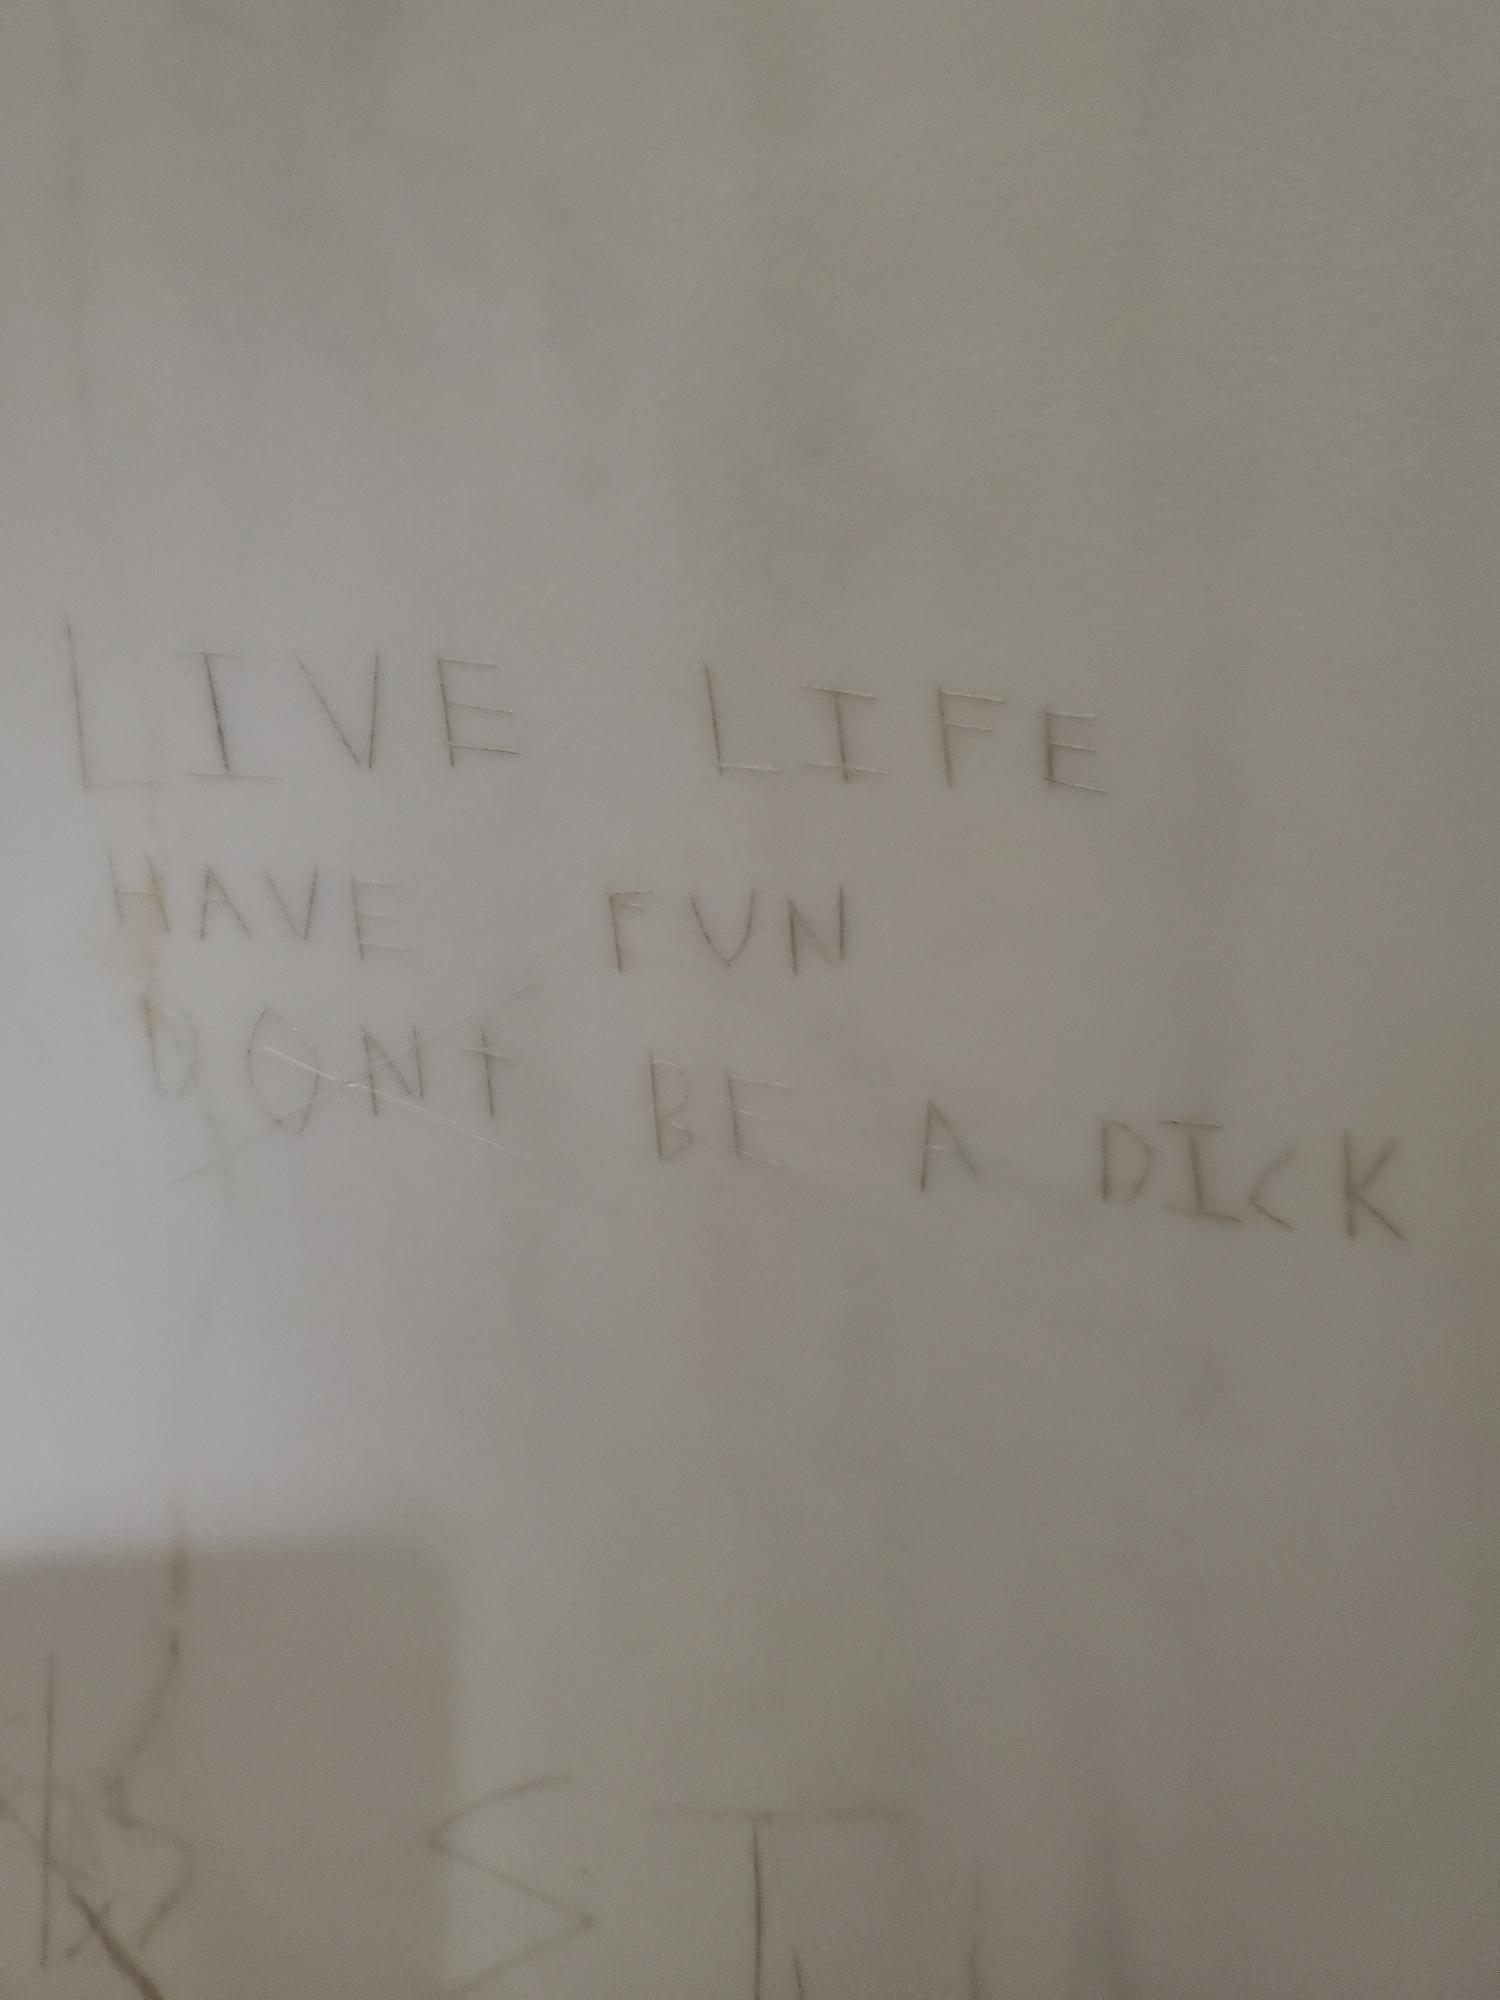 LIVE LIFE
HAVE FUN
DONT BE A DICK